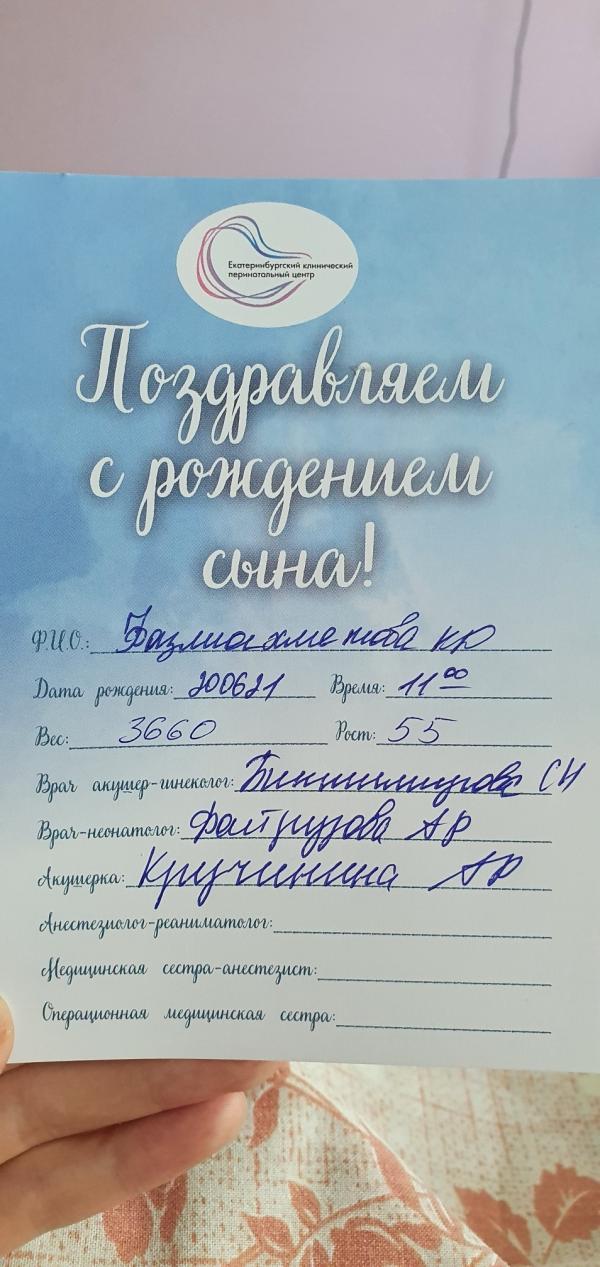 Екатеринбургский клинический
перинатальный центр
Поздравляем
с рождением
сына!
Ф.И.О.: КР
Дата рождения: 200621 Время: 11⁰⁰
Вес: 3660 Рост: 55
Врач акушер-гинеколог: СН
Врач-неонатолог: Фатрузова АР
Акушерка: Кручинина АР
Анестезиолог-реаниматолог:
Медицинская сестра-анестезист:
Операционная медицинская сестра: